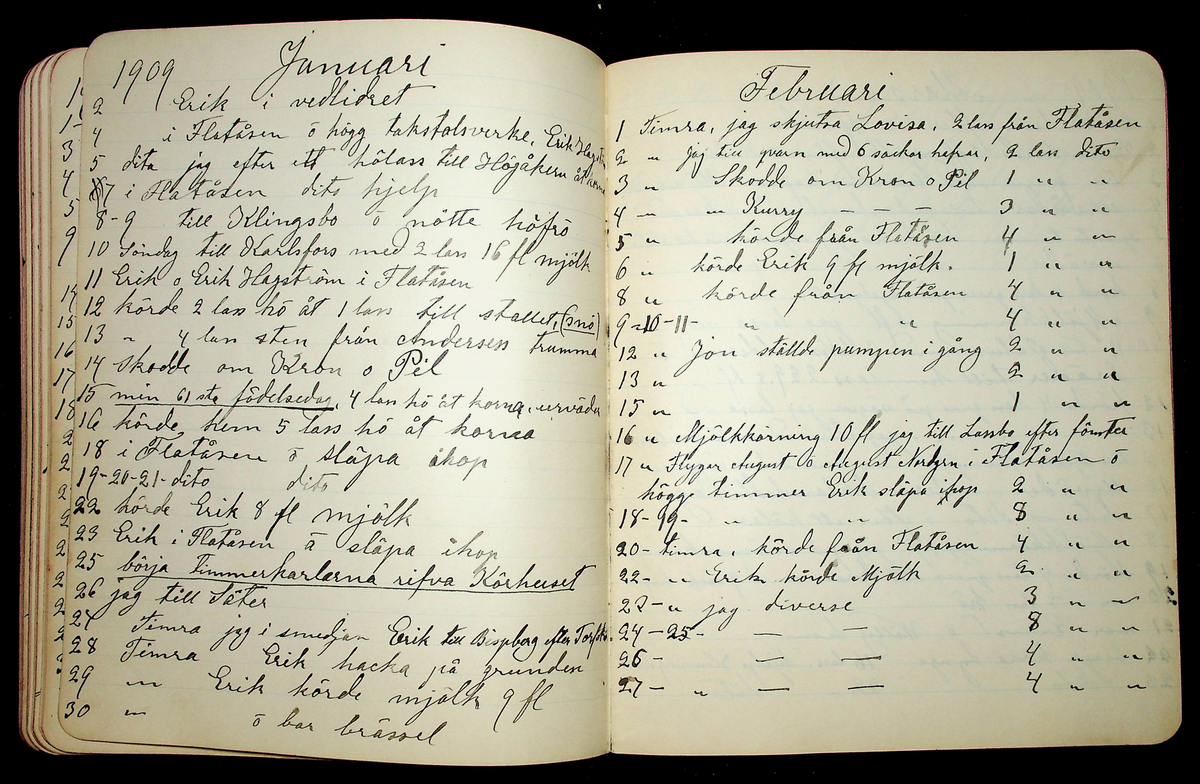 1909 Januari
2 Erik i vedlidret
4 i Flatåsen ö högg takstolsverke, Erik Hagst
5 dita jag efter ett hölass till Höjåkern åt korna
7 i Flatåsen dito hjelp
8-9 till Klingsbo ö nötte höfrö
10 Söndag till Karlsfors med 2 lass 16 fl mjölk
11 Erik o Erik Hagström i Flatåsen
12 körde 2 lass hö åt 1 lass till stallet, (snö)
13 " 4 lass sten från Anderses trumma
14 skodde om Kron o Pil
15 min 61 sta födelsedag, 4 lass hö åt korna, urväder
16 körde hem 5 lass hö åt korna
18 i Flatåsen ö släpa ihop
19-20-21- dito dito
22 körde Erik 8 fl mjölk
23 Erik i Flatåsen å släpa ihop
25 börja timmerkarlarna rifva Körhuset
26 jag till Säter
27 Timra jag i smedjan Erik till Bispberg efter
28 Timra Erik hacka på grunden
29 " Erik körde mjölk 9 fl
30 " ö bar brässel
Februari
1 Timra, jag skjutsa Lovisa, 2 lass från Flatåsen
2 " Jag till qvarn med 6 säckar hafrar, 2 lass dito
3 " Skodde om Kron o Pil 1 " "
4 — " Kurry — — — 3 " "
5 " körde från Flatåsen 4 " "
6 " körde Erik 9 fl mjölk. 1 " "
8 " körde från Flatåsen 4 " "
9-10-11- " " 4 " "
12 " Jon ställde pumpen i gång 2 " "
13 " 2 " "
15 " 1 " "
16 " Mjölkkörning 10 fl jag till Lassbo efter fönster
17 " Flygar August o August Nordgren i Flatåsen ö
högge timmer Erik släpa ihop 2 " "
18-19- " " 8 " "
20- timra, körde från Flatåsen 4 " "
22- " Erik körde Mjölk 2 " "
23- " jag diverse 3 " "
24-25- — — 8 " "
26- — — 4 " "
27- " — — 4 " "